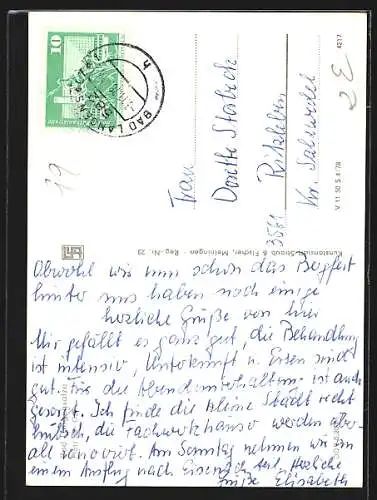 10
BAD LANG
Frau
Dorothe Storbeck
3561 Ritzleben
Kr. Salzwedel
4217
V 11 50 S 4/78
Kunstanstalt Straub & Fischer, Meiningen - Reg.-Nr. 23
Obwohl wir nun schon das Bergfest
hinter uns haben noch einige
herzliche Grüße von hier
Mir gefällt es ganz gut, die Behandlung
ist intensiv, Unterkunft u. Essen sind
gut. Für die Abendunterhaltung ist auch
gesorgt. Ich finde die kleine Stadt recht
hübsch, die Fachwerkhäuser werden aber
alle renoviert. Am Sonntag nehmen wir an
einem Ausflug nach Eisenach teil. Herzliche
Grüße Elisabeth